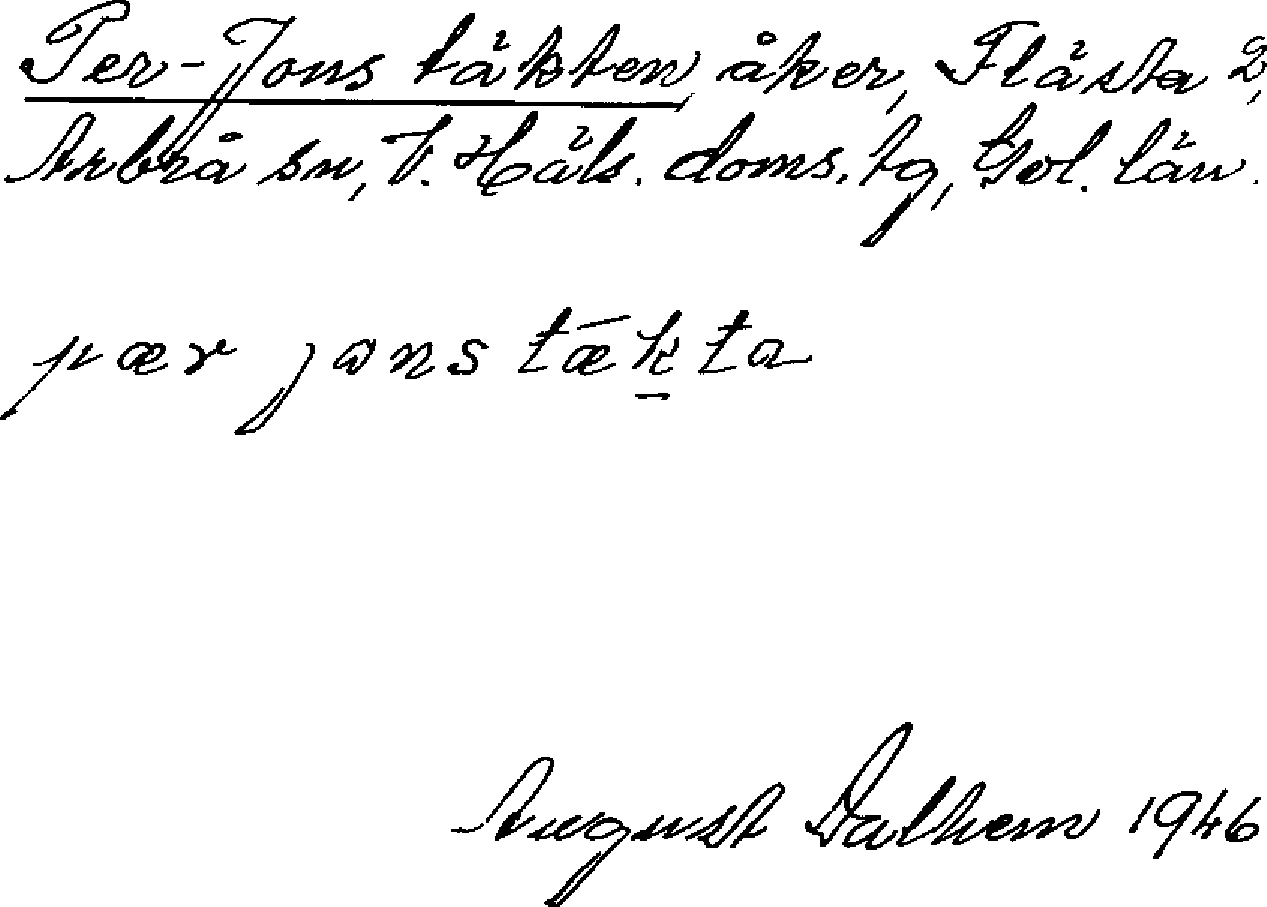 Per-Jons täkten, åker, Flästa 2,
Arbrå sn, V. Häls. doms. tg, Gvl. län.
pær jons tǽk̲ta
August Dalhem 1946